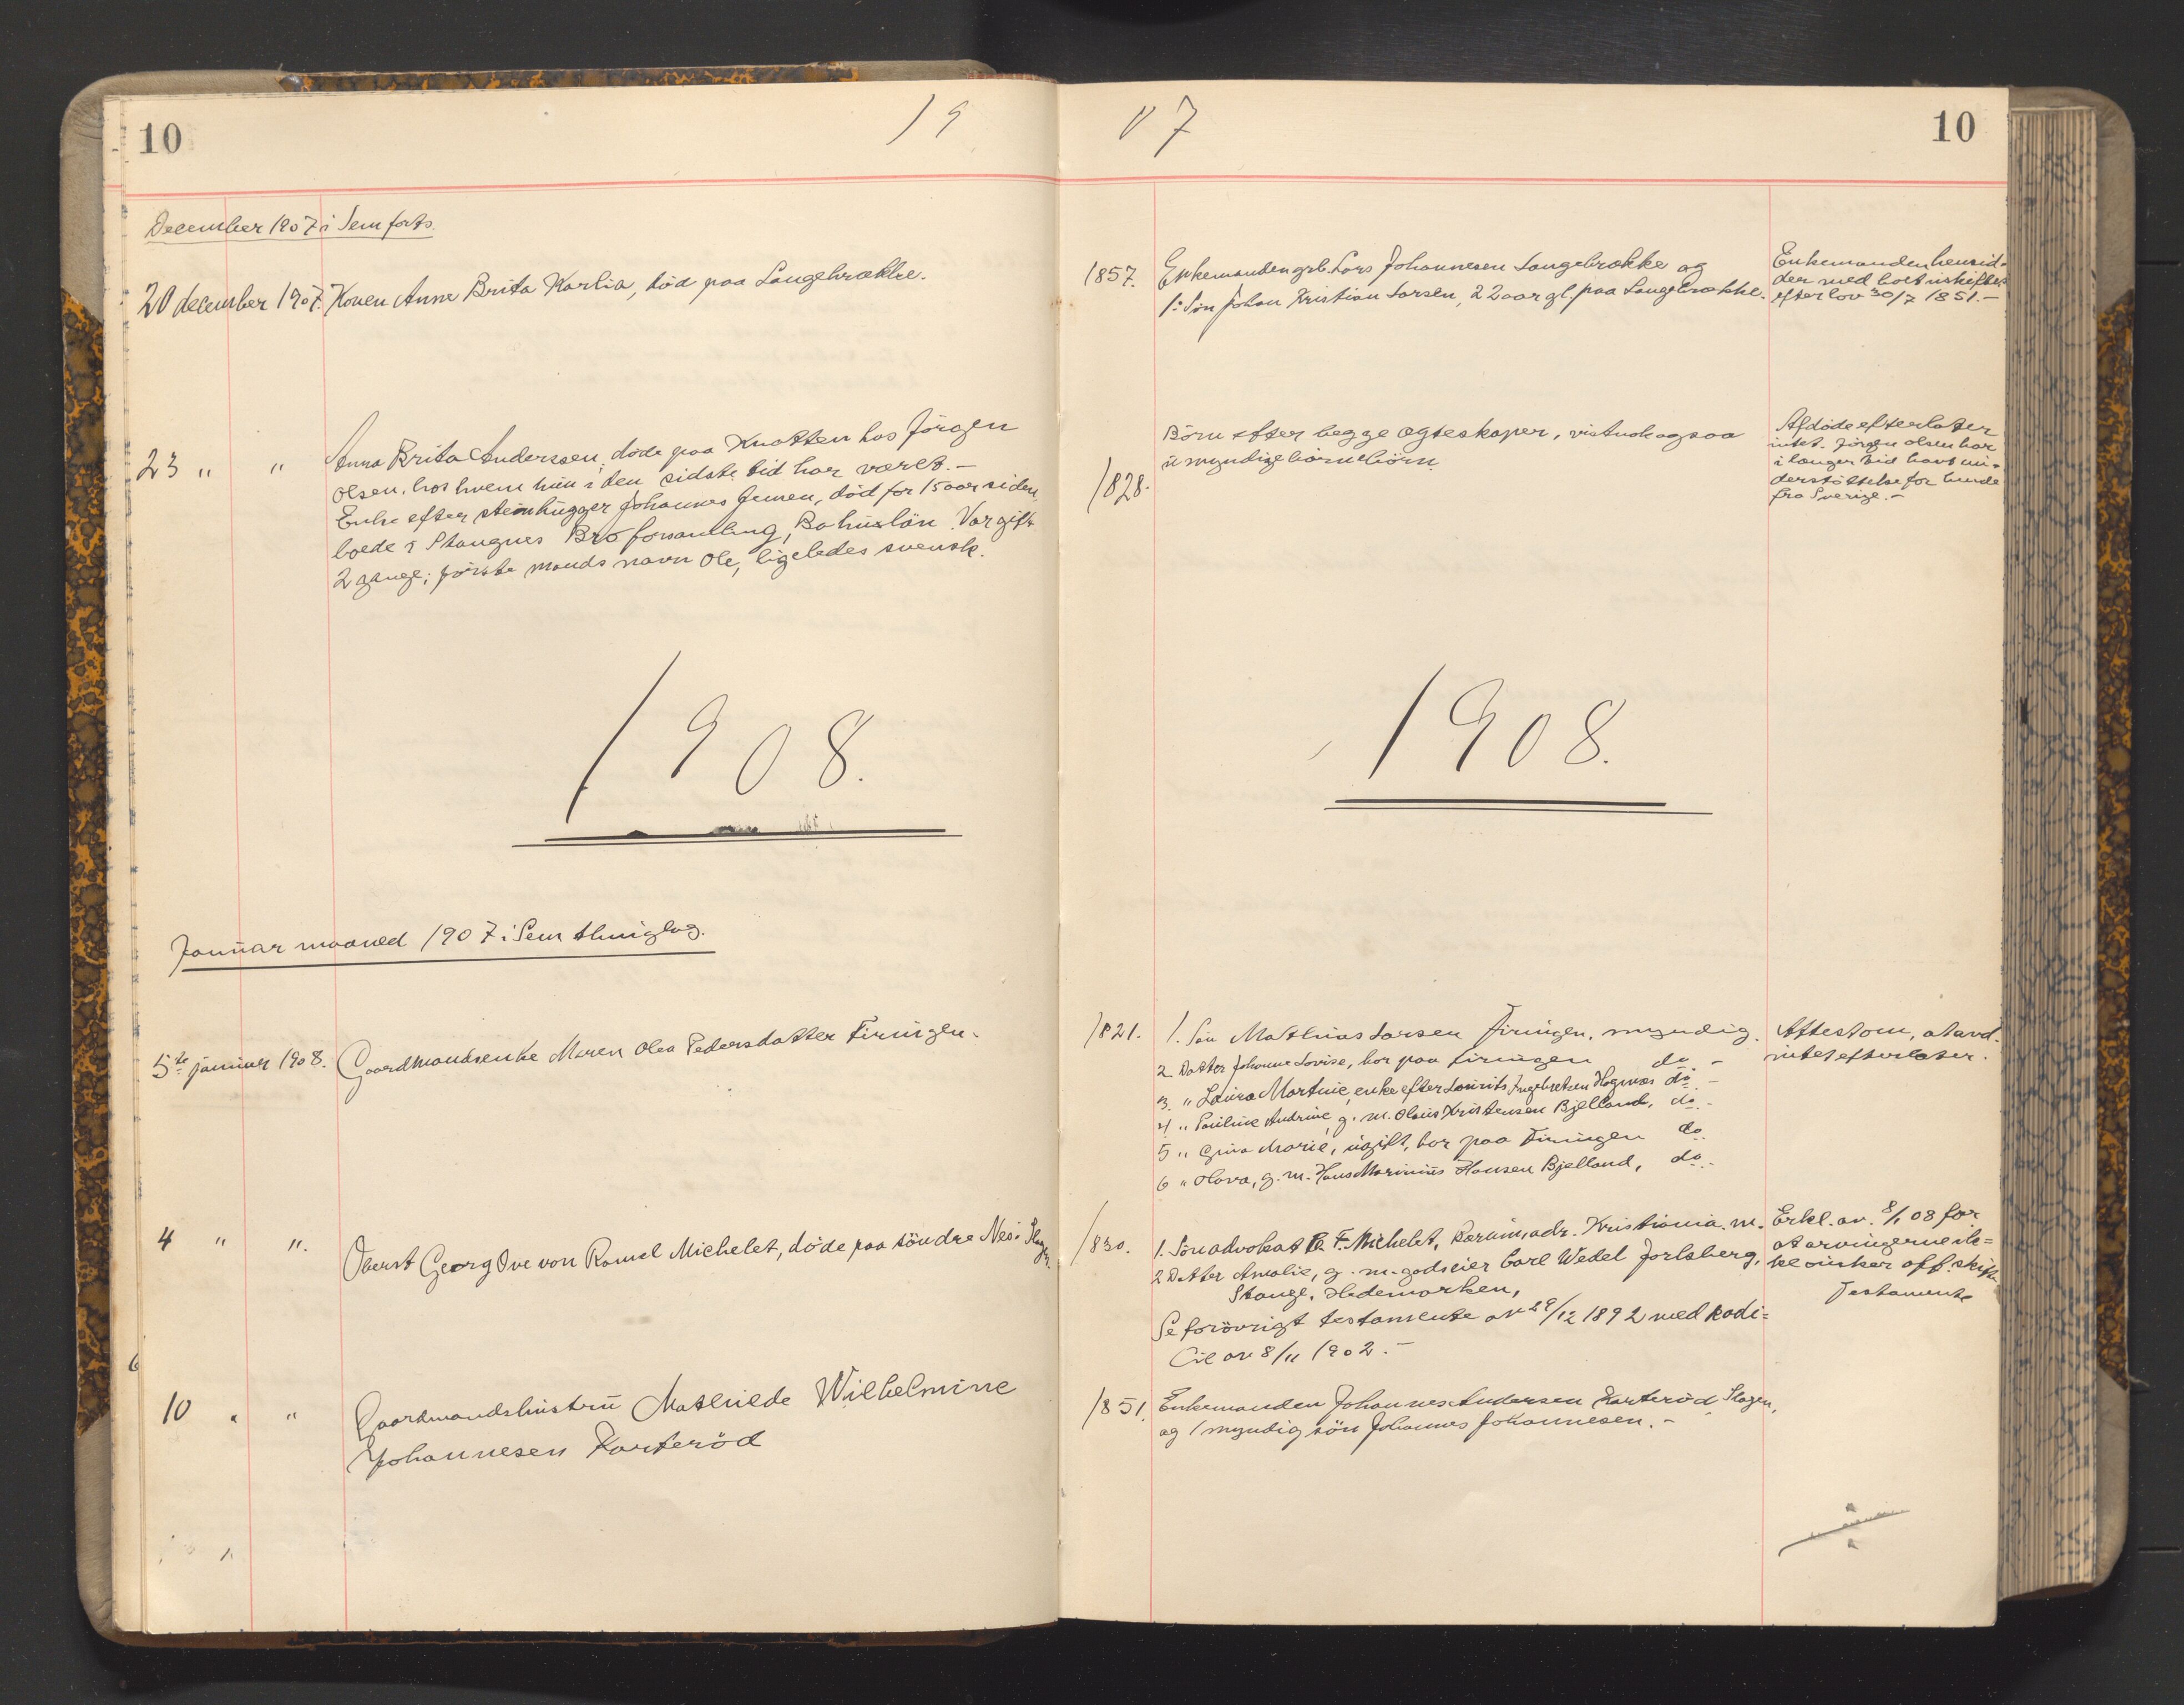 10
19
07
10
December 1907 i Sem forts.
20 december 1907. Konen Anne Brita Karlia, död paa Langebrække.
1857. Enkemanden grb. Lars Johannesen Langebrække og
1: Sön Johan Kristian Larsen, 22 aar gl. paa Langebrække.
Enkemanden hensid-
der med boet uskiftet
efter lov 30/7 1851.-
23 " " Anna Brita Anderssen, döde paa Knatten hos Jörgen
Olsen, hos hvem hun i den sidste tid har været.-
Enke efter steinhugger Johannes Jensen, död for 15 aar siden,
boede i Stangnes Bro forsamling, Bohuslän. Var gift
2 gange; förste mands navn Ole, ligeledes svensk.
1828.
Börn efter begge ægteskaper, vistnok ogsaa
umyndige börnebörn.
Afdöde efterlater
intet. Jörgen Olsen har
i længer tid havt un-
derstöttelse for hende
fra Sverige.-
1908.
1908.
Januar maaned 1907 i Sem thinglag.
5te januar 1908. Gaardmandsenke Maren Olea Pedersdatter Firingen.
1821. 1. Sön Mathias Larsen Firingen, myndig.
2. Datter Johanne Lovise, bor paa Firingen do -
3. " Laura Martine, enke efter Laurits Ingebretsen Hognæs do -
4 " Pauline Andrine, g. m. Olaus Kristensen Bjelland, do -
5 " Gina Marie, ugift, bor paa Firingen do
6 " Olava, g. m. Hans Marinius Hansen Bjelland, do -
Attest om, at avd.
intet efterlater.
4 " ". Oberst Georg Ove von Romel Michelet, döde paa söndre Nes i Slagen.
1830. 1. Sön advokat F. Michelet, adr. Kristiania. m.
2 Datter Amalie, g. m. godseier Carl Wedel Jarlsberg,
Stange, Hedemarken,
Se forövrigt testamente av 29/12 1892 med kodi=
cil av 8/11 1902.-
Erkl. av. 8/1 08 for
at arvingerne ik=
ke önsker off. skifte
Testamente
10 " " Gaardmandshustru Mathilde Wilhelmine
Johannesen Korteröd
1851. Enkemanden Johannes Andersen Korteröd, Slagen,
og 1 myndig sön Johannes Johannesen.-